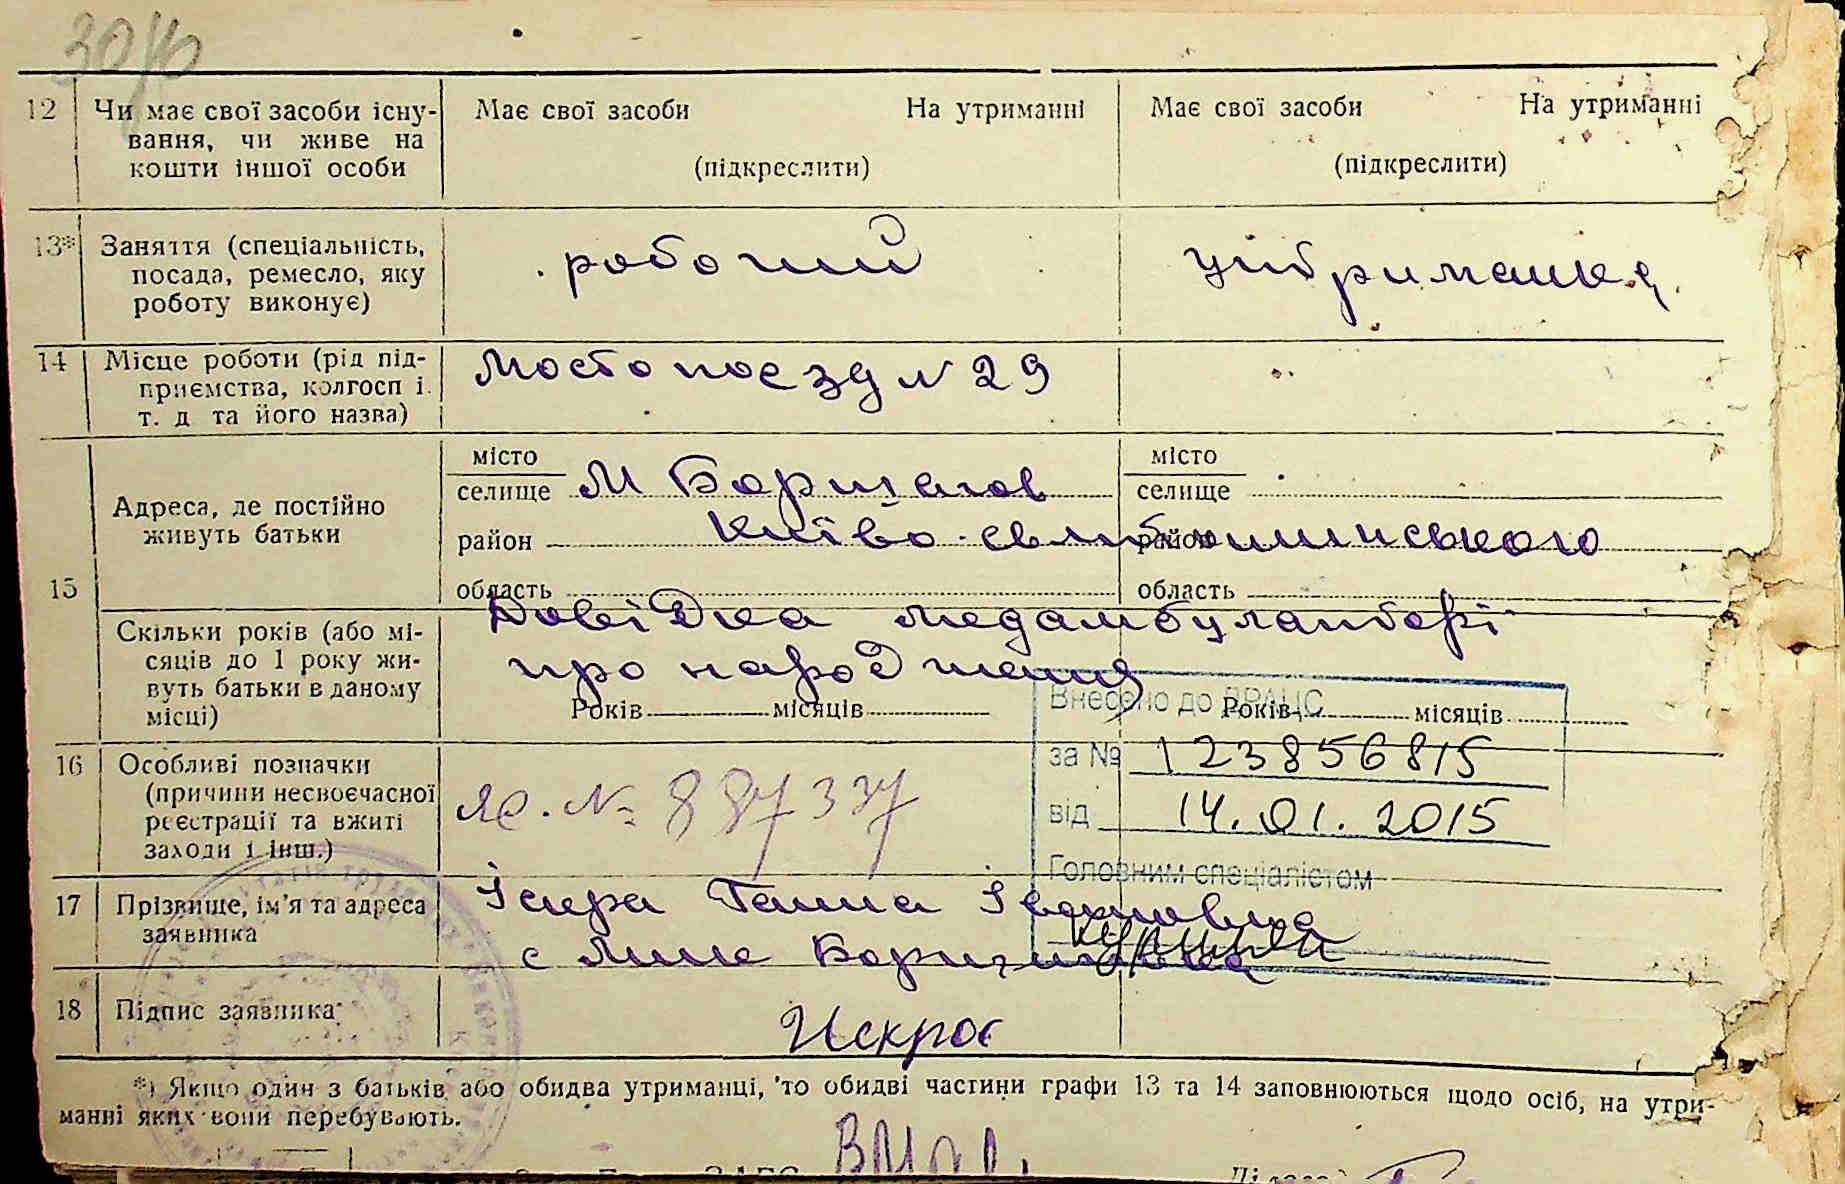 30/10
12 Чи має свої засоби існу- Має свої засоби На утриманні Має свої засоби На утриманні
вання, чи живе на
кошти іншої особи (підкреслити) (підкреслити)
13* Заняття (спеціальність, робочий утриманка
посада, ремесло, яку
роботу виконує)
14 Місце роботи (рід під- Мостопоезд N 29
приємства, колгосп і
т. д та його назва)
місто місто
селище М Борщагов селище
Адреса, де постійно
живуть батьки
район Київо-Святошинського район
15
область область
Довідка медамбулаторі
Скільки років (або мі-
сяців до 1 року жи- про народження
вуть батьки в даному
місці) Років місяців Років місяців
Внесено до ДРАЦС
за № 123856815
від 14.01.2015
Головним спеціалістом
16 Особливі позначки
(причини несвоєчасної № 887337
реєстрації та вжиті
заходи і інш.)
17 Прізвище, ім'я та адреса Іскра Ганна Іванівна
заявника с Мик Борщагівка
18 Підпис заявника Искра
*) Якщо один з батьків або обидва утриманці, то обидві частини графи 13 та 14 заповнюються щодо осіб, на утри-
манні яких вони перебувають.
ЗАГС